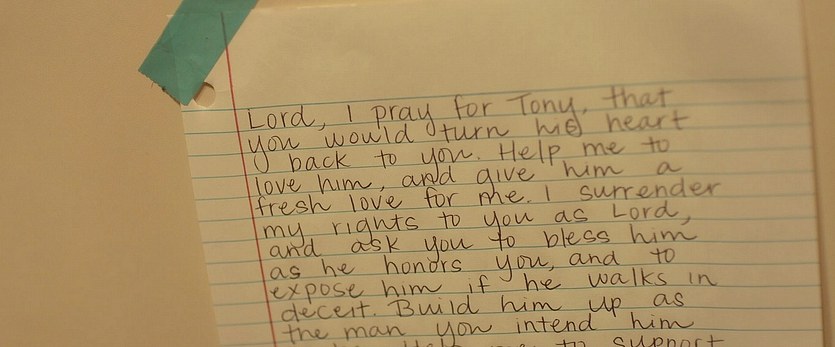 Lord, I pray for Tony, that
you would turn his heart
back to you. Help me to
love him, and give him a
fresh love for me. I surrender
my rights to you as Lord,
and ask you to bless him
as he honors you, and to
expose him if he walks in
deceit. Build him up as
the man you intend him
to support